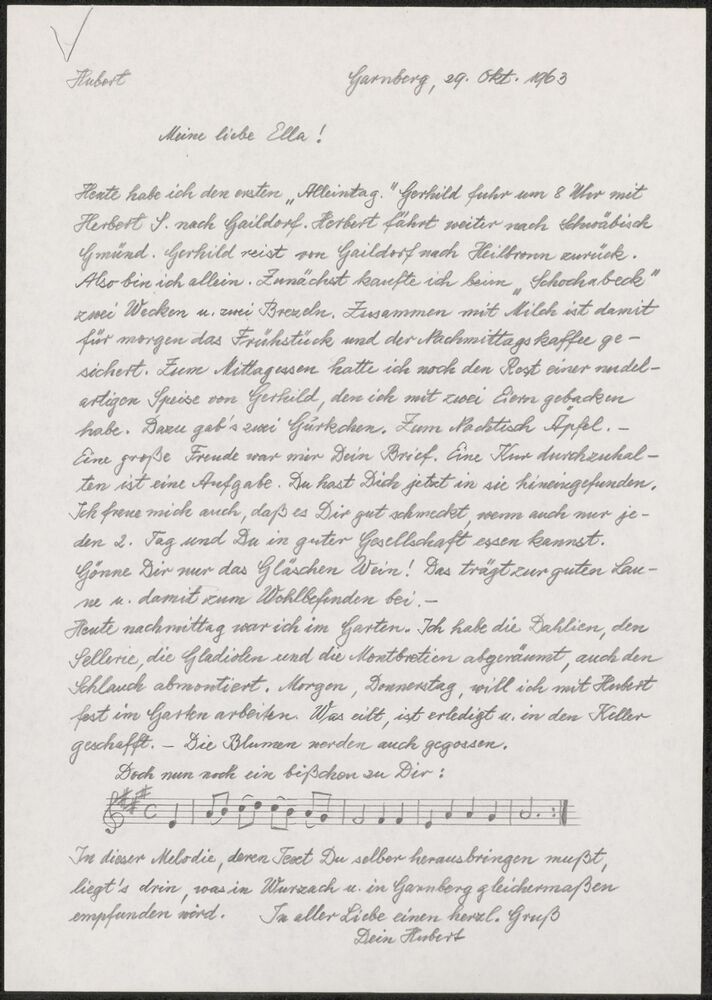 Hubert
Garnberg, 29. Okt. 1963
Meine liebe Ella!
Heute habe ich den ersten „Alleintag." Gerhild fuhr um 8 Uhr mit
Herbert S. nach Gaildorf. Herbert fährt weiter nach Schwäbisch
Gmünd. Gerhild reist von Gaildorf nach Heilbronn zurück.
Also bin ich allein. Zunächst kaufte ich beim „Schochabeck"
zwei Wecken u. zwei Brezeln. Zusammen mit Milch ist damit
für morgen das Frühstück und der Nachmittagskaffee ge-
sichert. Zum Mittagessen hatte ich noch den Rest einer nudel-
artigen Speise von Gerhild, den ich mit zwei Eiern gebacken
habe. Dazu gab's zwei Gürkchen. Zum Nachtisch Äpfel. –
Eine große Freude war mir Dein Brief. Eine Kur durchzuhal-
ten ist eine Aufgabe. Du hast Dich jetzt in sie hineingefunden.
Ich freue mich auch, daß es Dir gut schmeckt, wenn auch nur je-
den 2. Tag und Du in guter Gesellschaft essen kannst.
Gönne Dir nur das Gläschen Wein! Das trägt zur guten Lau-
ne u. damit zum Wohlbefinden bei. –
Heute nachmittag war ich im Garten. Ich habe die Dahlien, den
Sellerie, die Gladiolen und die Montbretien abgeräumt, auch den
Schlauch abmontiert. Morgen, Donnerstag, will ich mit Hubert
fest im Garten arbeiten. Was eilt, ist erledigt u. in den Keller
geschafft. – Die Blumen werden auch gegossen.
Doch nun noch ein bißchen zu Dir:
In dieser Melodie, deren Text Du selber herausbringen mußt,
liegt's drin, was in Wurzach u. in Garnberg gleichermaßen
empfunden wird. In aller Liebe einen herzl. Gruß
Dein Hubert